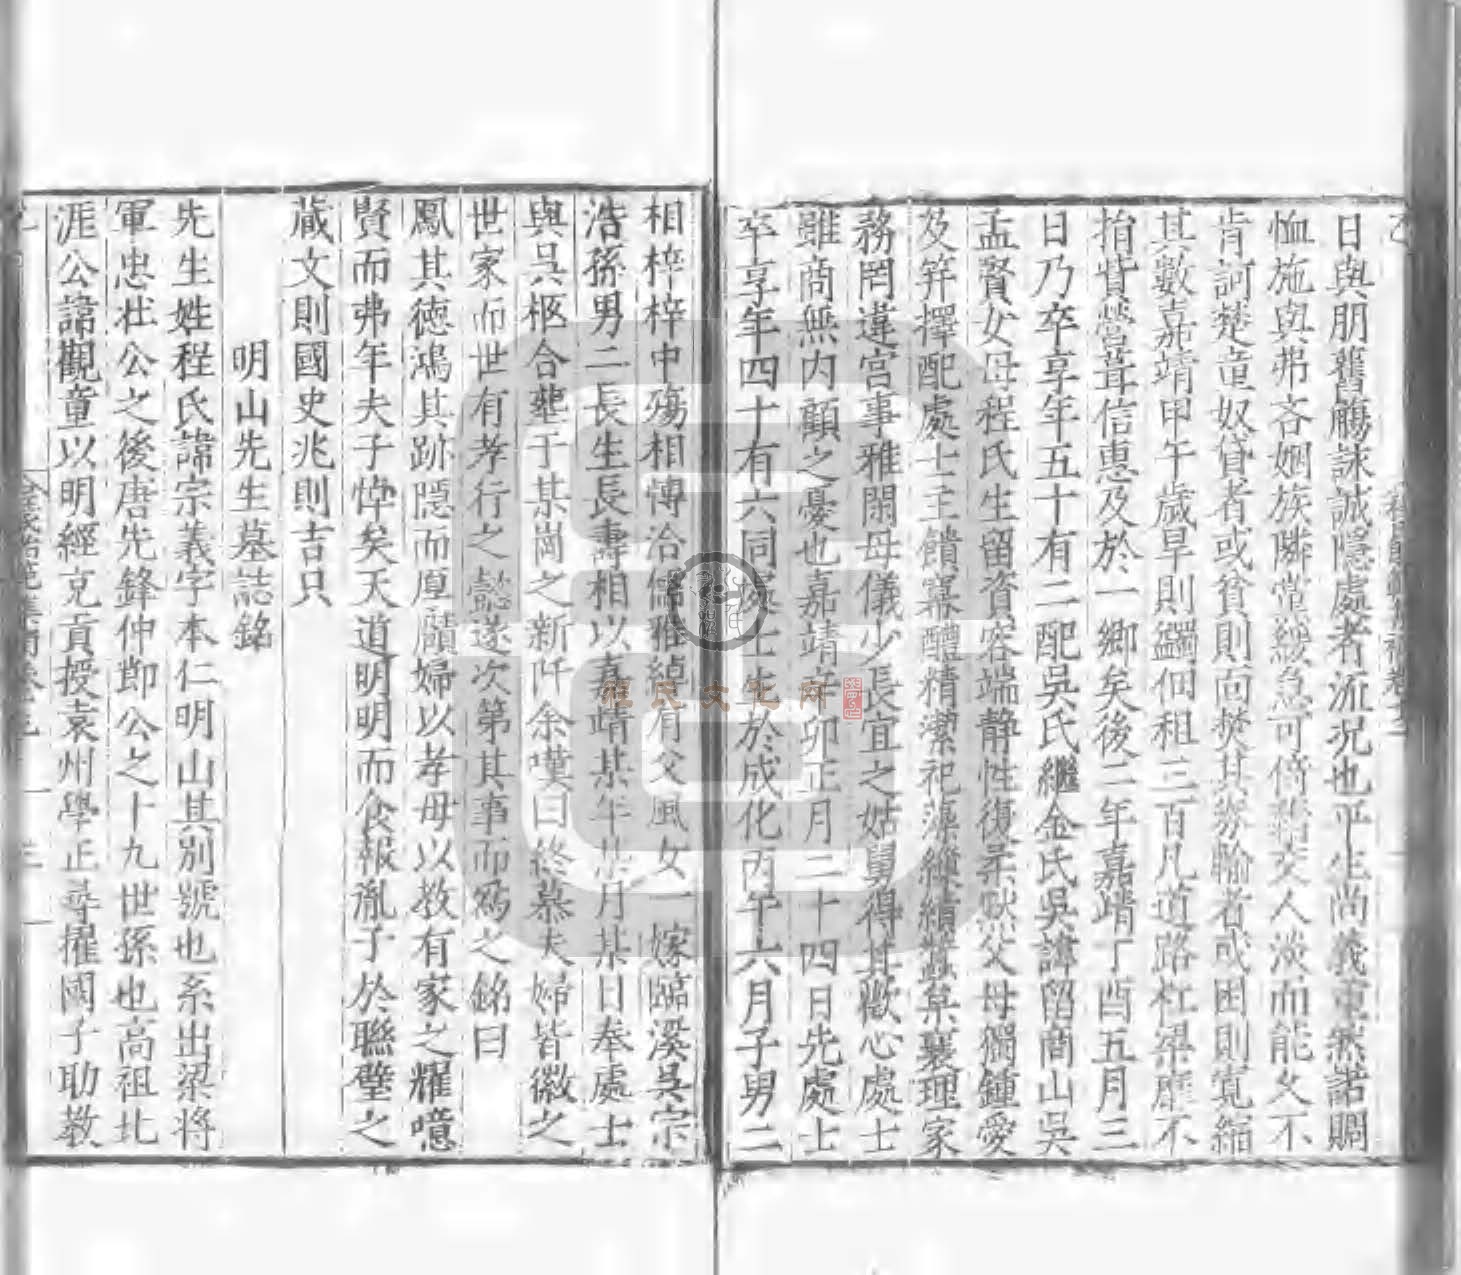 日與朋舊觴詠誠隱處者流況也平生尚義重然諾賙
恤施與弗吝姻族隣黨緩急可倚諧交人淡而能久不
肯訶楚童奴貸者或貧則而焚其券輸者或困則寬縮
其數嘉靖甲午歲旱則蠲佃租三百凡道路杠梁靡不
捐貲營葺信惠及於一鄉矣後二年嘉靖丁酉五月三
日乃卒享年五十有二配吳氏繼金氏吳諱留商山吳
孟賢女母程氏生留資容端靜性復柔默父母獨鍾愛
及笄擇配處士主饋羃醴精潔祀藻繰績蠶桑襄理家
務罔違宮事雅閑母儀少長宜之姑舅得其歡心處士
雖商無内顧之憂也嘉靖辛卯正月二十四日先處士
卒享年四十有六同處士生於成化丙午六月子男二
相梓梓中殤相博洽儒雅綽有父風女一嫁臨溪吳宗
浩孫男二長生長壽相以嘉靖某年某月某日奉處士
與吳柩合塟于某崗之新阡余嘆曰終慕夫婦皆徽之
世家而世有孝行之懿遂次第其事而爲之銘曰
鳳其德鴻其跡隱而厚顧婦以孝母以教有家之耀噫
賢而弗年夫子悼矣天道明明而食報胤子於聯璧之
藏文則國史兆則吉只
明山先生墓誌銘
先生姓程氏諱宗義字本仁明山其別號也系出梁將
軍忠壯公之後唐先鋒仲節公之十九世孫也高祖北
涯公諱觀童以明經充貢授袁州學正尋擢國子助教
程民文化网